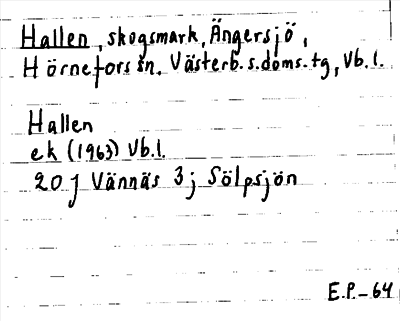 Hallen, skogsmark, Ängersjö,
Hörnefors sn. Västerb. s. doms. tg, Vb. l.
Hallen
ek (1963) Vb. l.
20 J Vännäs 3 j Sölpsjön
E.P.-64